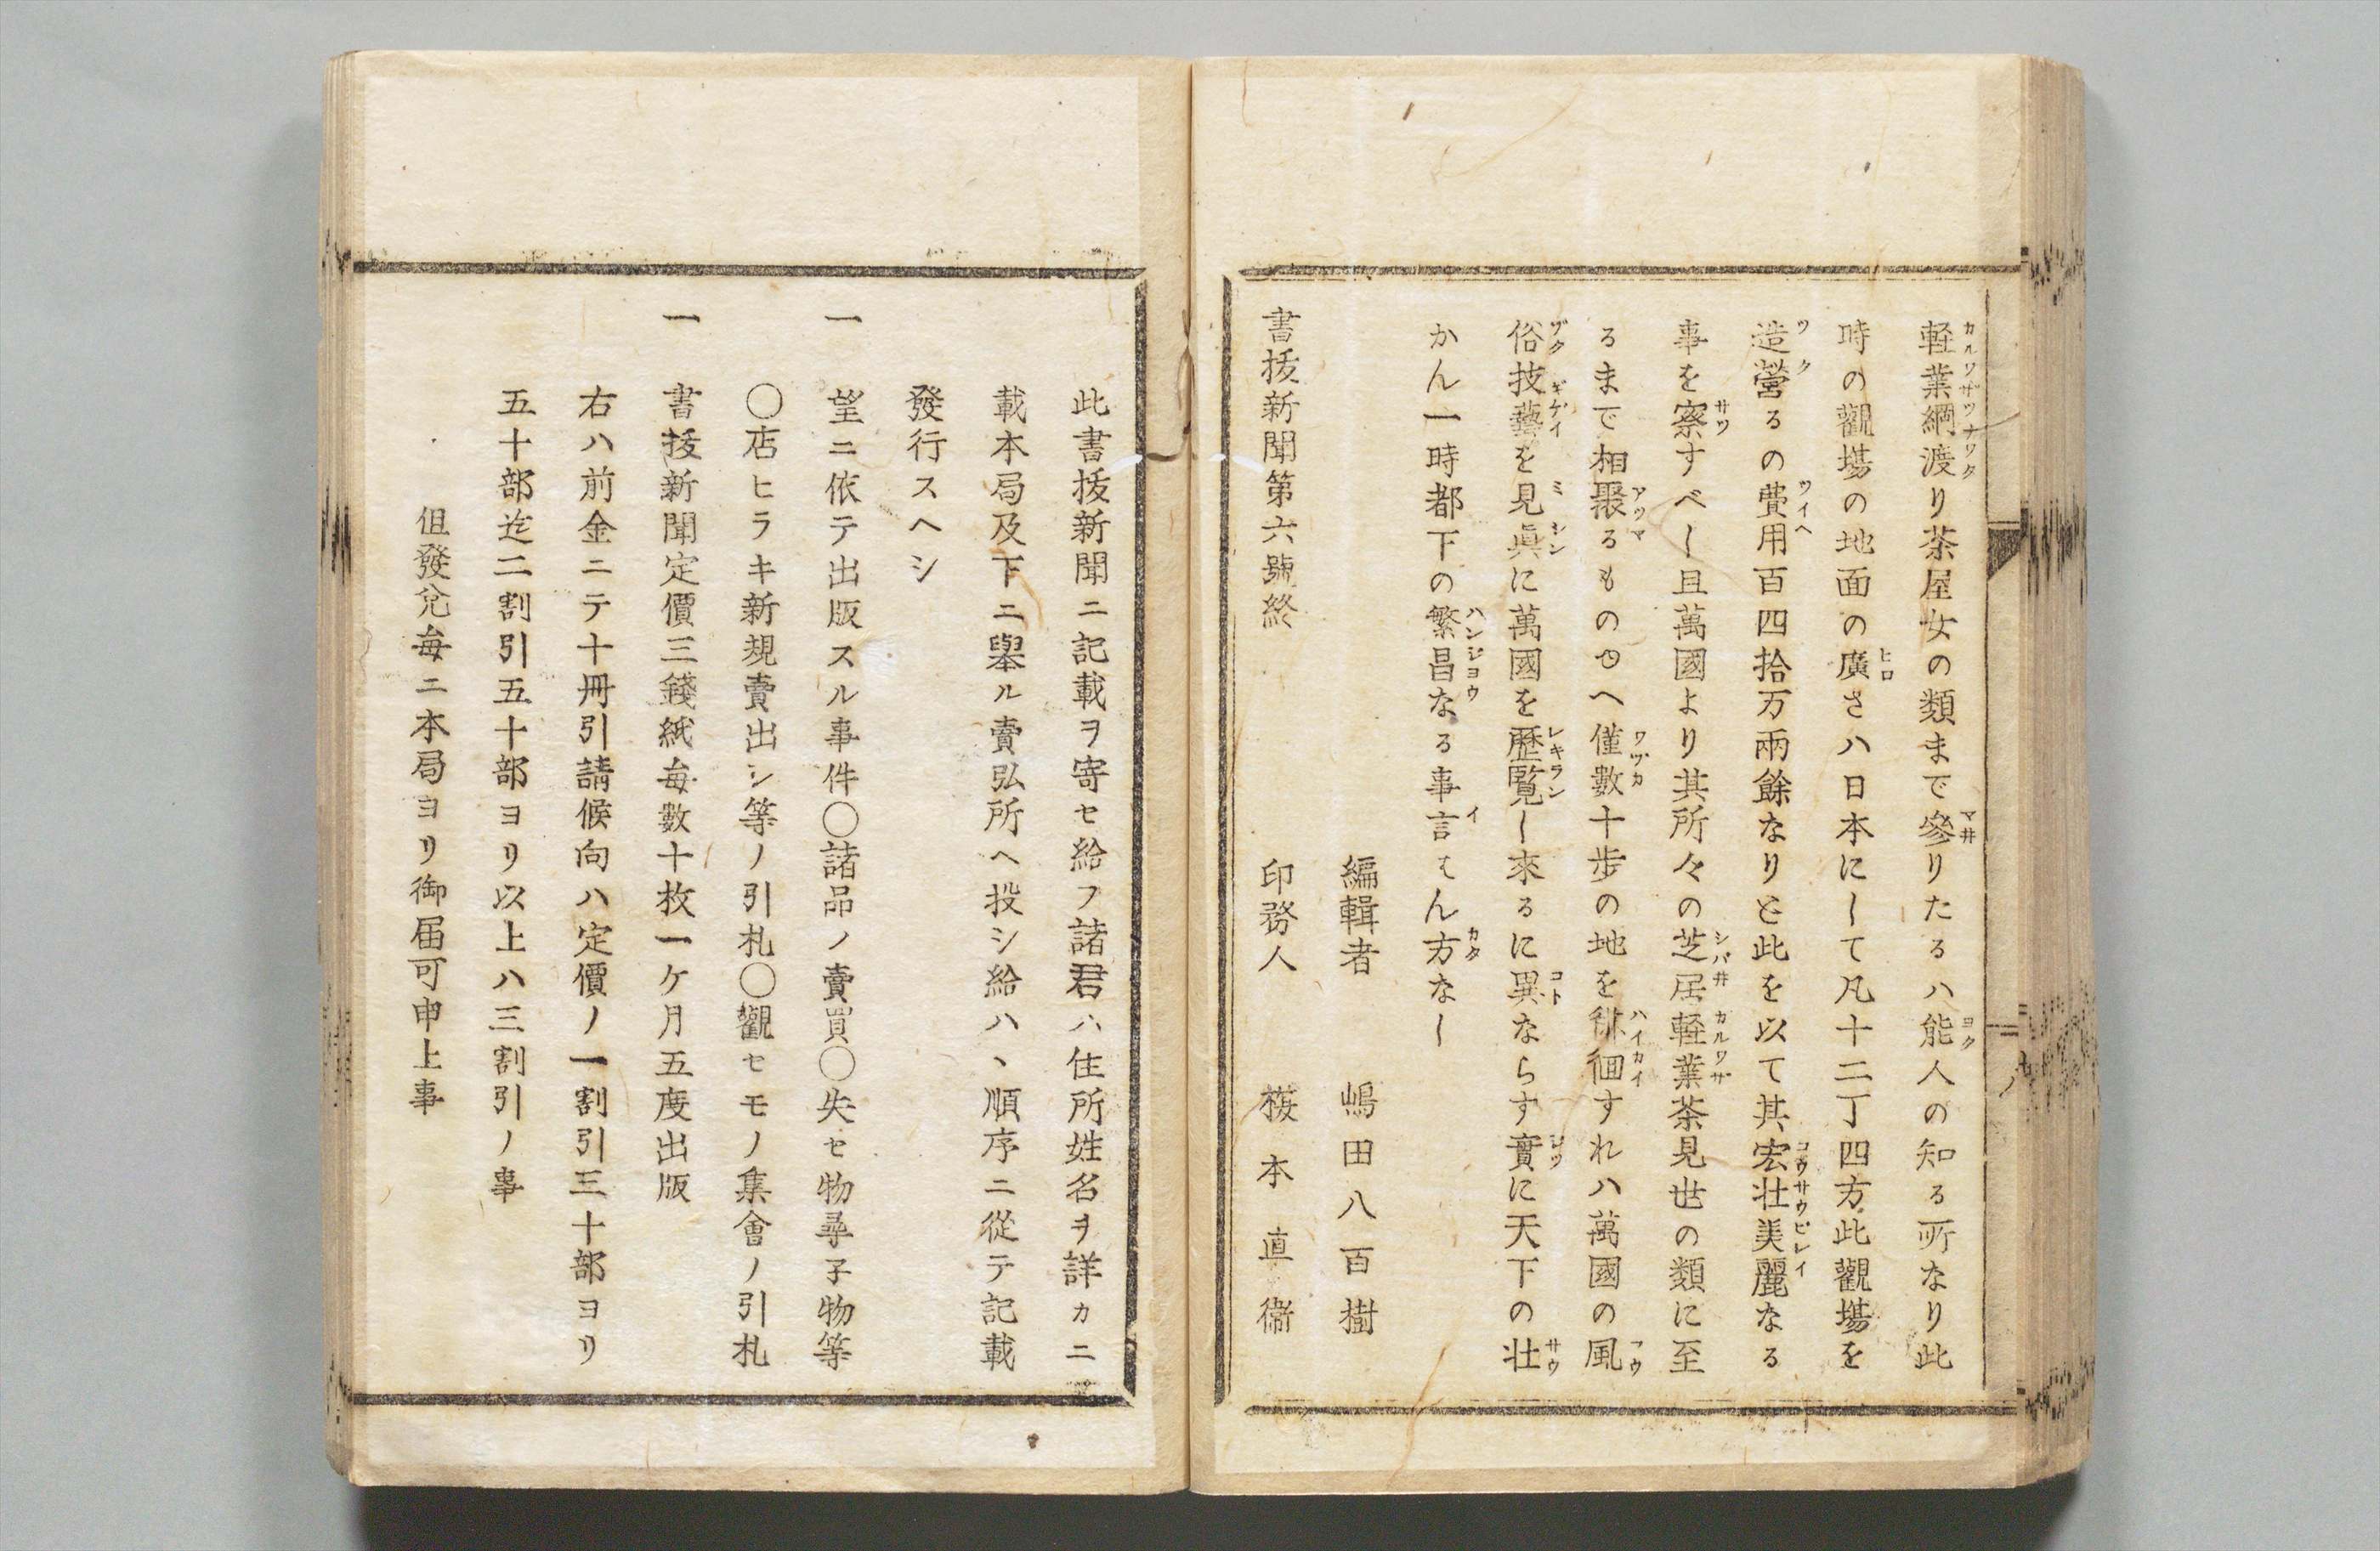 軽業綱渡り茶屋女の類まで參りたるハ能人の知る所なり此
時の觀塲の地面の廣さハ日本にして凡十二丁四方此觀塲を
造營るの費用百四拾万兩餘なりと此を以て其宏壮美麗なる
事を察すべし且萬國より其所々の芝居軽業茶見世の類に至
るまで相聚るものゆへ僅數十歩の地を徘徊すれハ萬國の風
俗技藝を見眞に萬國を歴覧し來るに異ならす實に天下の壮
かん一時都下の繁昌なる事言はん方なし
編輯者　嶋田八百樹
書拔新聞第六號終　印務人　榎本直衛
此書拔新聞ニ記載ヲ寄セ給フ諸君ハ住所姓名ヲ詳カニ
載本局及下ニ擧ル賣弘所ヘ投シ給ハヽ順序ニ從テ記載
發行スヘシ
一　望ニ依テ出版スル事件〇諸品ノ賣買〇失セ物尋子物等
〇店ヒラキ新規賣出シ等ノ引札〇觀セモノ集會ノ引札
一　書拔新聞定價三錢紙毎數十枚一ケ月五度出版
右ハ前金ニテ十冊引請候向ハ定價ノ一割引三十部ヨリ
五十部迄二割引五十部ヨリ以上ハ三割引ノ事
但發兌毎ニ本局ヨリ御届可申上事